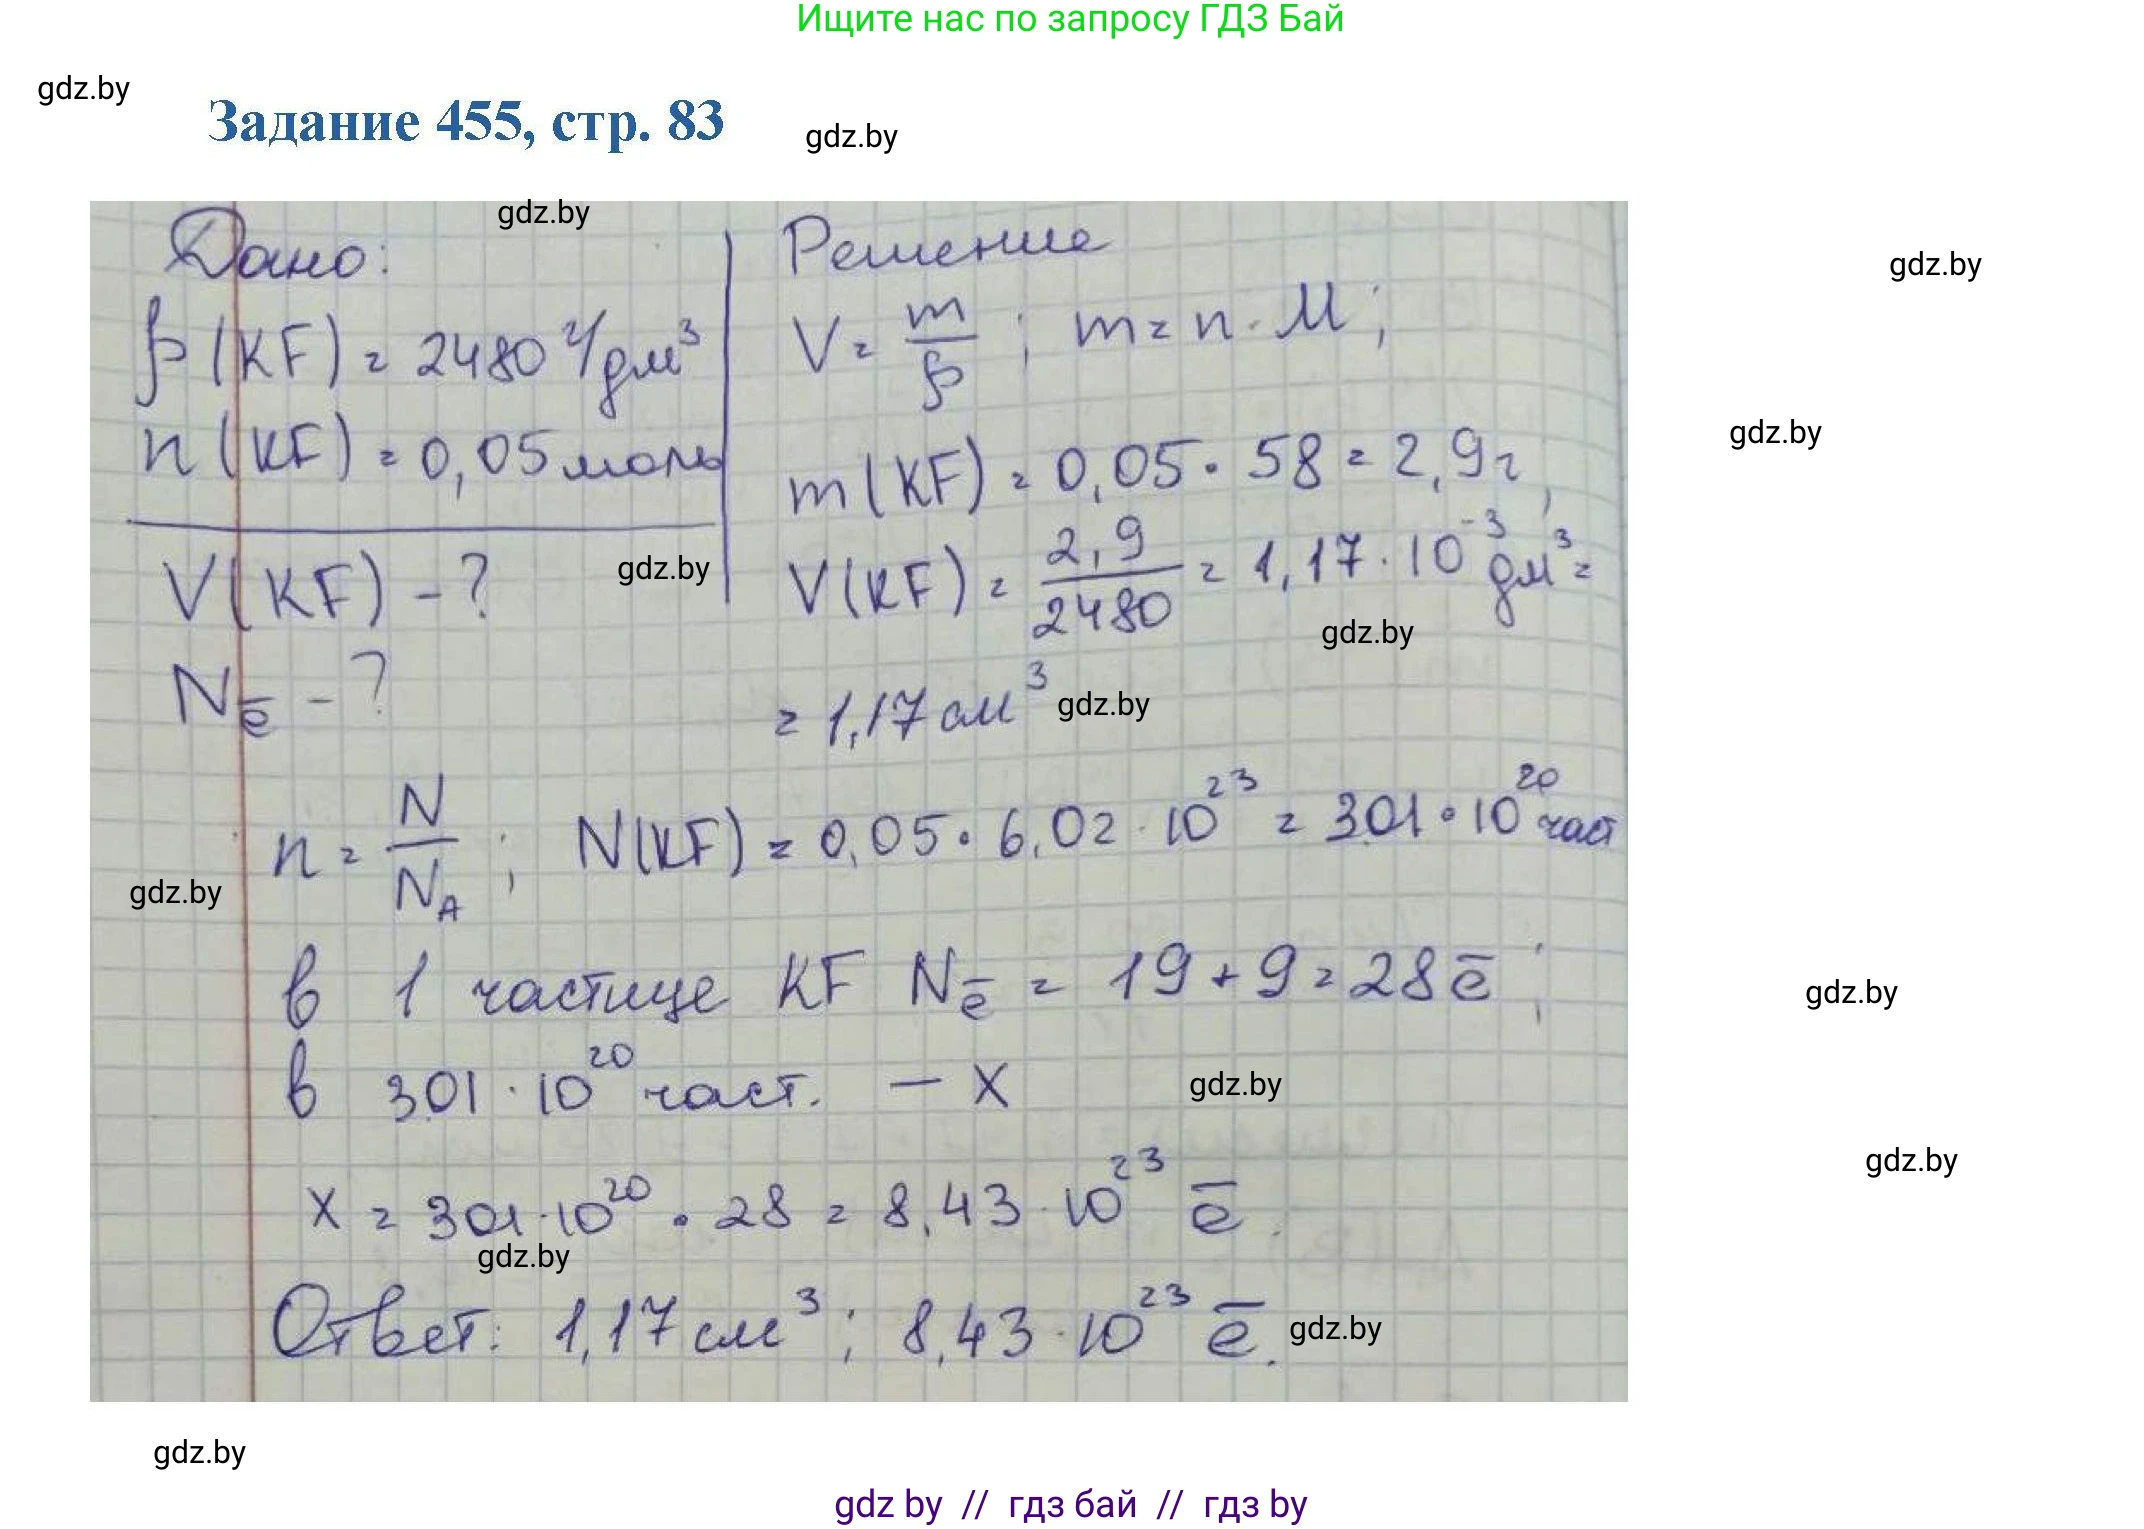 Ищите нас по запросу ГДЗ Бай
gdz.by
Задание 455, стр. 83
gdz.by
gdz.by
Дано:
ρ(KF) = 2480 г/дм³
n(KF) = 0,05 моль
V(KF) - ?
Nē - ?
Решение
V = m/ρ ; m = n · M;
m(KF) = 0,05 · 58 = 2,9 г,
V(KF) = 2,9/2480 = 1,17 · 10⁻³ дм³ =
= 1,17 см³
gdz.by
gdz.by
gdz.by
gdz.by
gdz.by
n = N/N_A ; N(KF) = 0,05 · 6,02 · 10²³ = 301 · 10²⁰ част
gdz.by
в 1 частице KF Nē = 19 + 9 = 28 ē ;
gdz.by
в 301 · 10²⁰ част. — x
gdz.by
gdz.by
x = 301 · 10²⁰ · 28 = 8,43 · 10²³ ē.
gdz.by
Ответ: 1,17 см³ ; 8,43 · 10²³ ē.
gdz.by
gdz.by
gdz by // гдз бай // гдз by